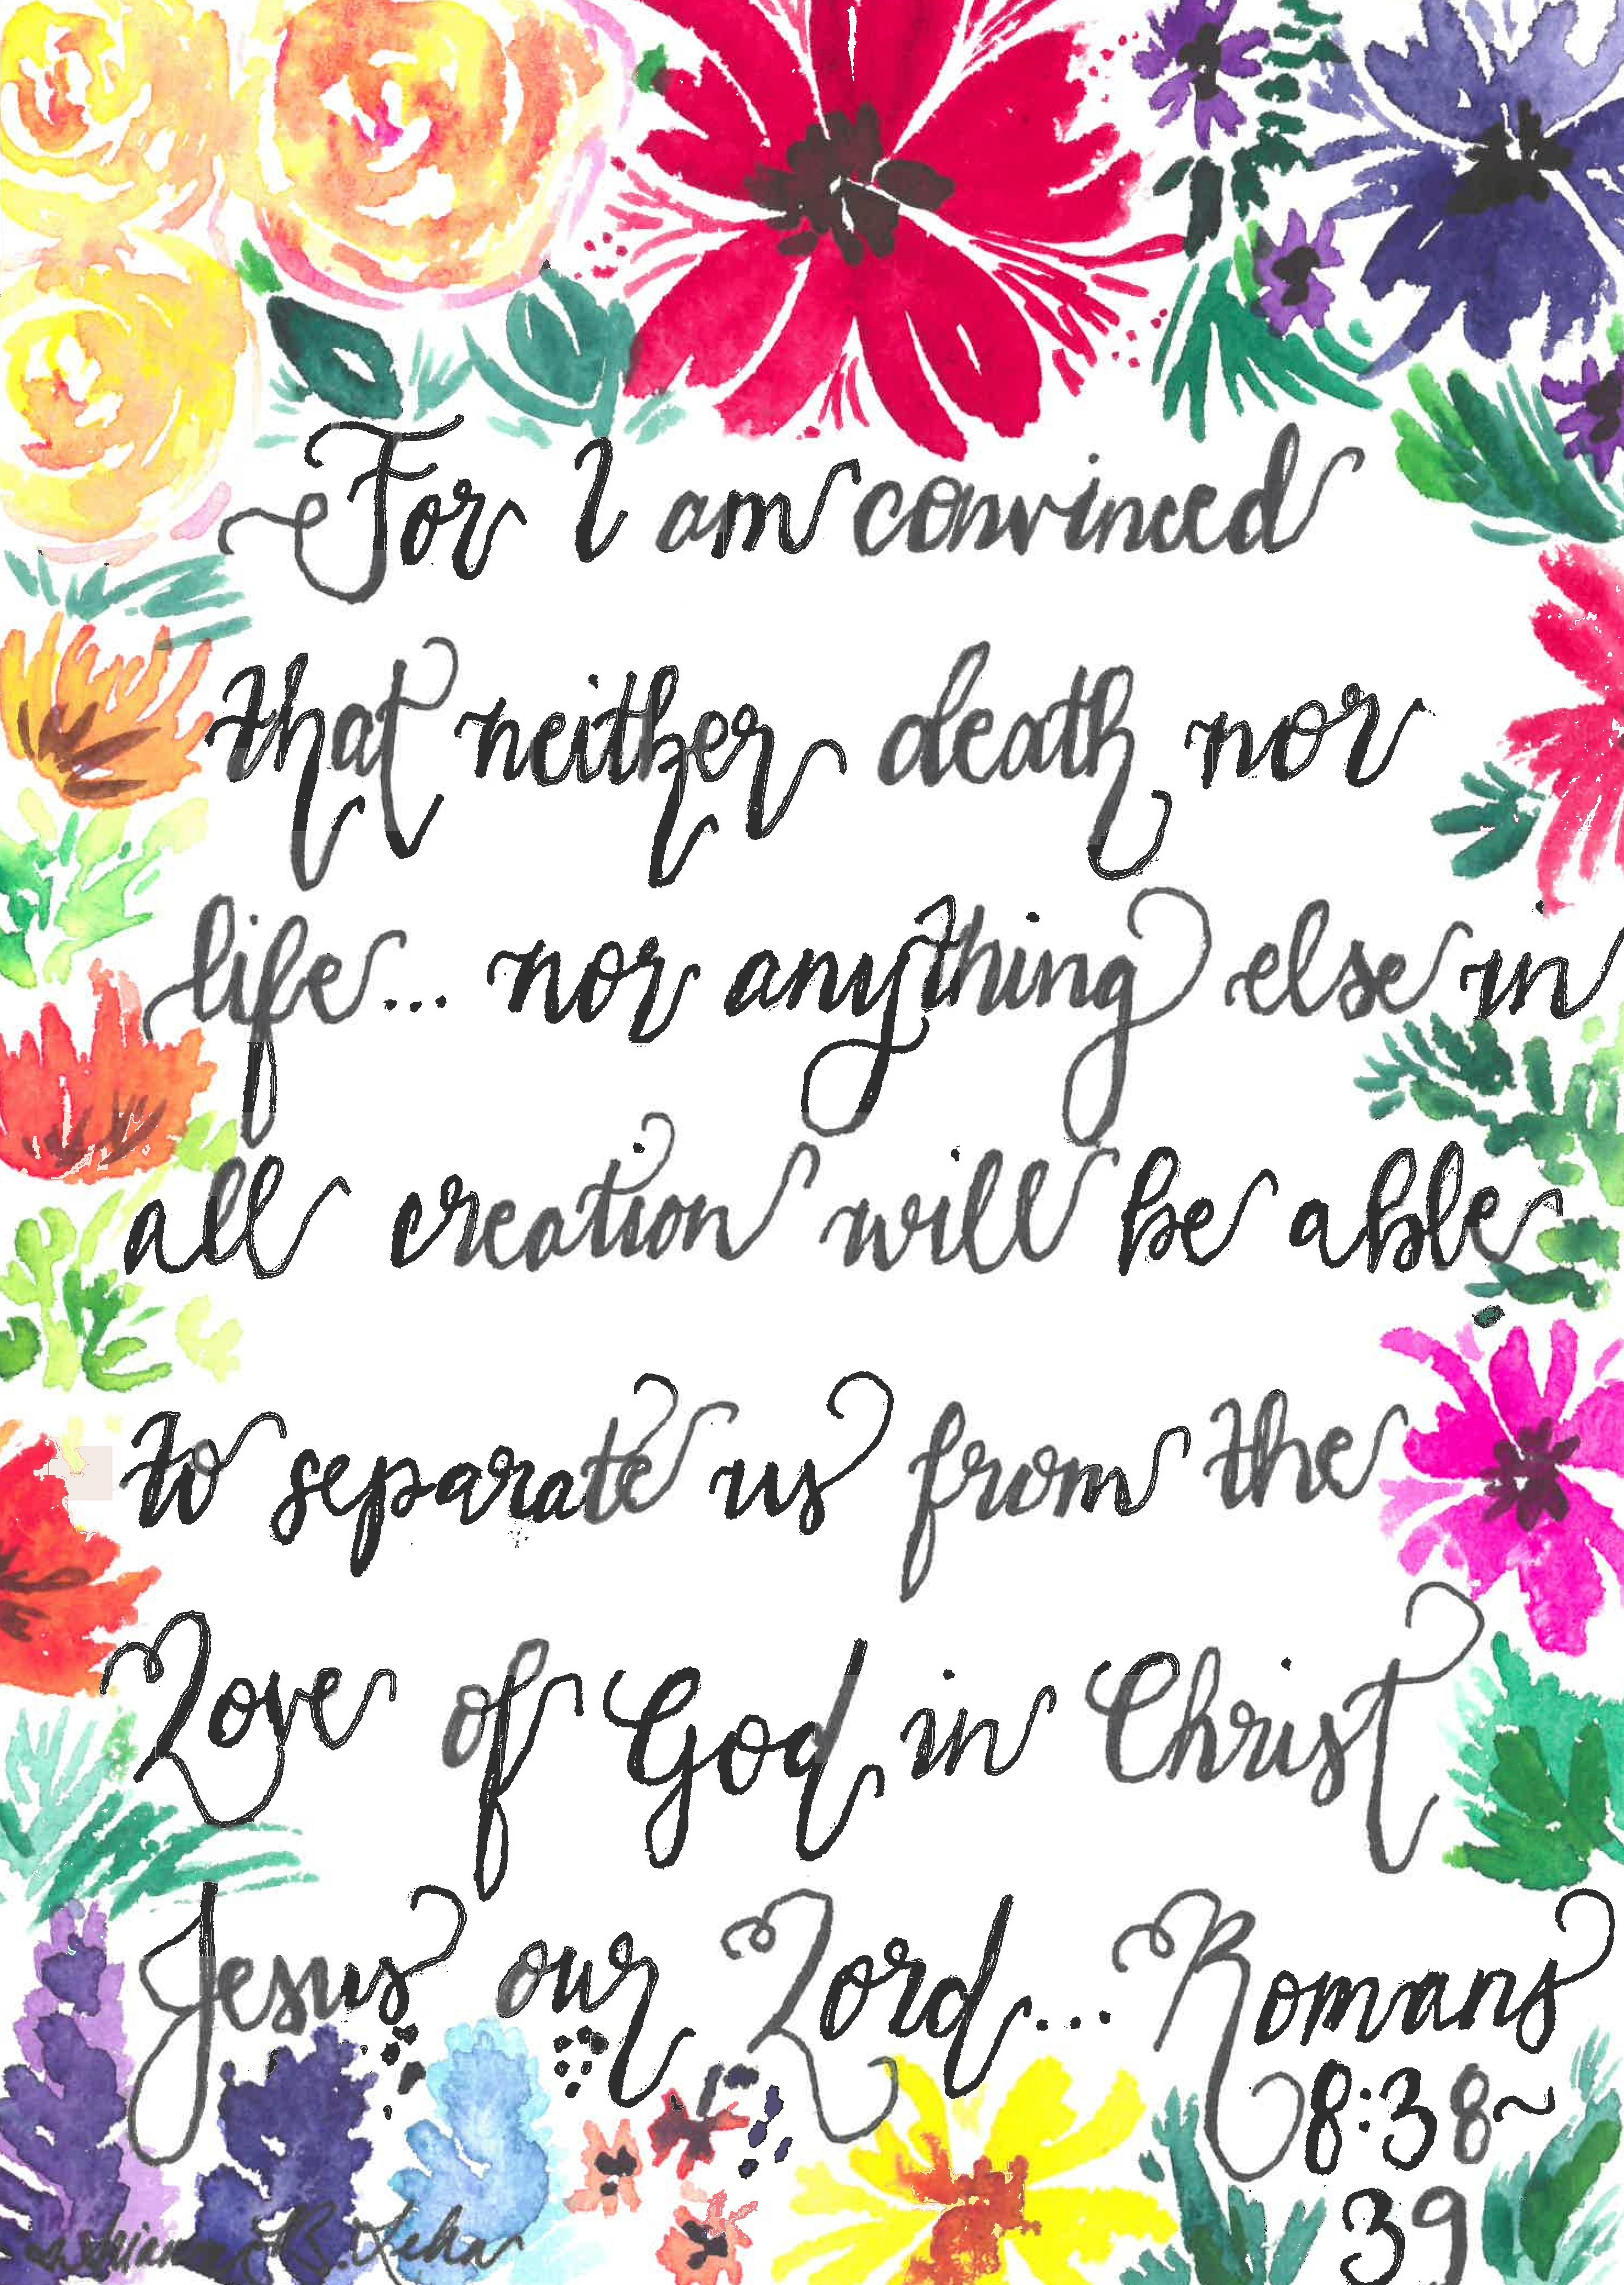 For I am convinced
that neither death nor
life... nor anything else in
all creation will be able
to separate us from the
Love of God in Christ
Jesus our Lord... Romans
8:38~
39